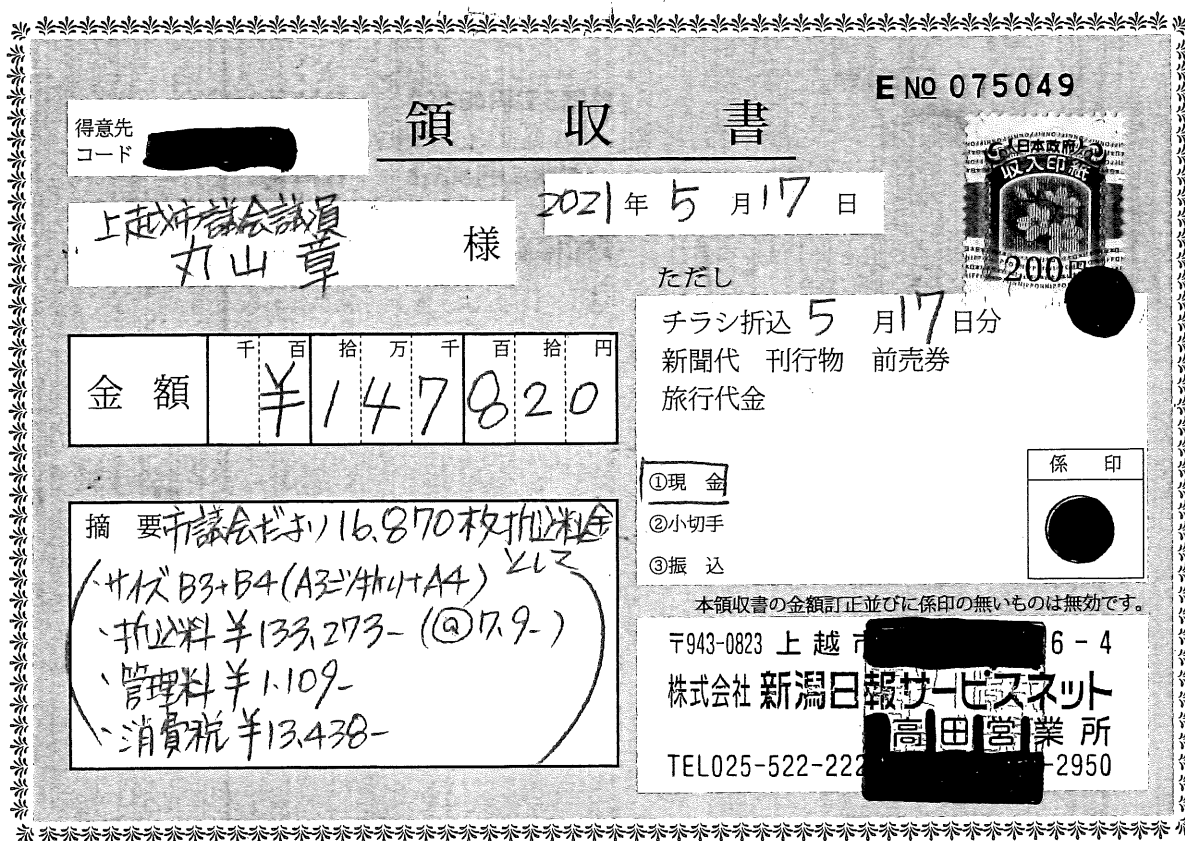 E No 075049
領収書
得意先
コード
日本政府
収入印紙
200円
2021年5月17日
上越市議会議員
丸山章 様
ただし
チラシ折込 5月17日分
新聞代 刊行物 前売券
旅行代金
千百拾万千百拾円
金額 ¥147820
①現金
②小切手
③振込
係印
摘要 市議会だより 16,870枚折込料金
として
・サイズ B3+B4(A3二ツ折り+A4)
・折込料 ¥133,273-(@7.9-)
・管理料 ¥1,109-
・消費税 ¥13,438-
本領収書の金額訂正並びに係印の無いものは無効です。
〒943-0823 上越市 6-4
株式会社 新潟日報サービスネット
高田営業所
TEL025-522-222 -2950